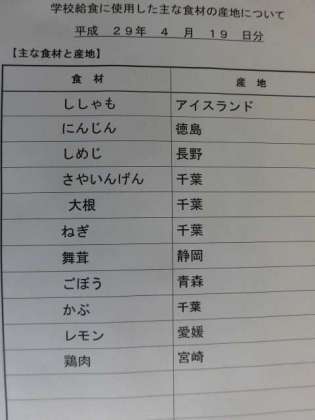 学校給食に使用した主な食材の産地について
平成 29年 4 月 19 日分
【主な食材と産地】
食 材 産 地
ししゃも アイスランド
にんじん 徳島
しめじ 長野
さやいんげん 千葉
大根 千葉
ねぎ 千葉
舞茸 静岡
ごぼう 青森
かぶ 千葉
レモン 愛媛
鶏肉 宮崎